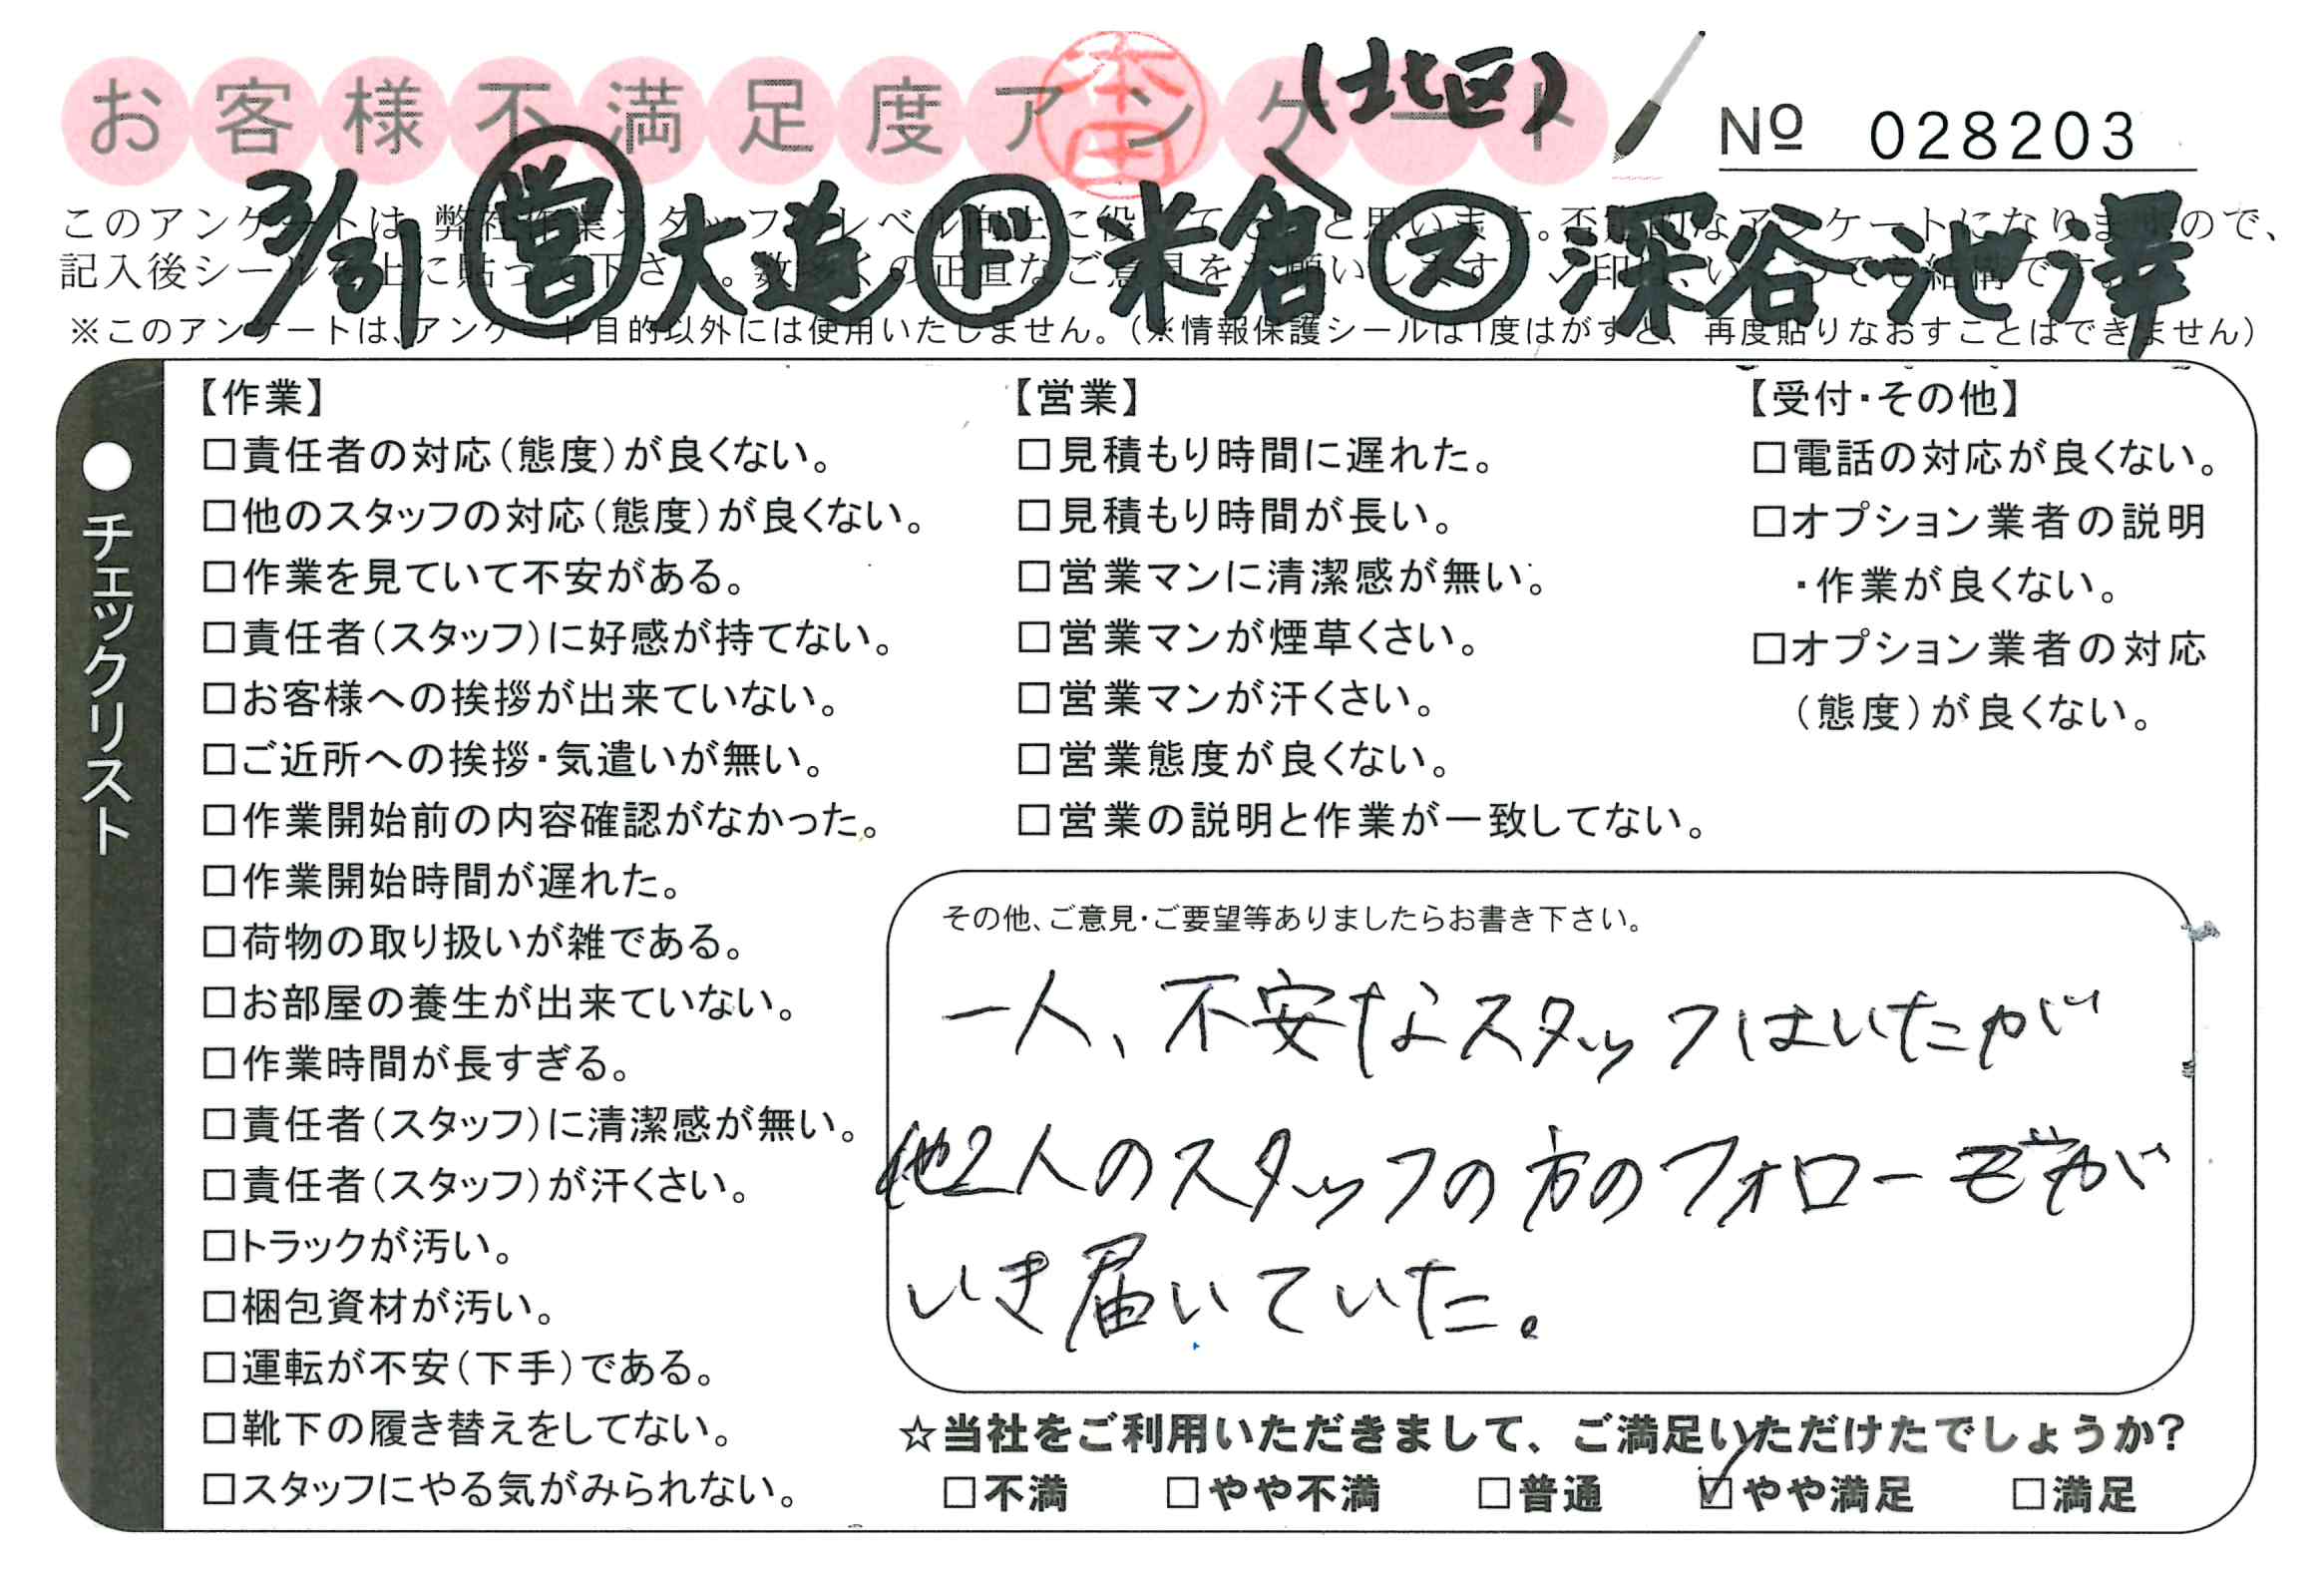 お客様不満足度アンケート
本田
(北区)
№ 028203
3/31 営 大道 ド 米倉 ス 深谷 池澤
このアンケートは、弊社作業スタッフのレベル向上に役立てたいと思います。否定的なアンケートになりますので、
記入後シールを上に貼って下さい。数多くの正直なご意見をお願いします。✓印は、いくつでも結構です。
※このアンケートは、アンケート目的以外には使用いたしません。(※情報保護シールは1度はがすと、再度貼りなおすことはできません)
●チェックリスト
【作業】
□責任者の対応(態度)が良くない。
□他のスタッフの対応(態度)が良くない。
□作業を見ていて不安がある。
□責任者(スタッフ)に好感が持てない。
□お客様への挨拶が出来ていない。
□ご近所への挨拶・気遣いが無い。
□作業開始前の内容確認がなかった。
□作業開始時間が遅れた。
□荷物の取り扱いが雑である。
□お部屋の養生が出来ていない。
□作業時間が長すぎる。
□責任者(スタッフ)に清潔感が無い。
□責任者(スタッフ)が汗くさい。
□トラックが汚い。
□梱包資材が汚い。
□運転が不安(下手)である。
□靴下の履き替えをしてない。
□スタッフにやる気がみられない。
【営業】
□見積もり時間に遅れた。
□見積もり時間が長い。
□営業マンに清潔感が無い。
□営業マンが煙草くさい。
□営業マンが汗くさい。
□営業態度が良くない。
□営業の説明と作業が一致してない。
【受付・その他】
□電話の対応が良くない。
□オプション業者の説明
・作業が良くない。
□オプション業者の対応
(態度)が良くない。
その他、ご意見・ご要望等ありましたらお書き下さい。
一人、不安なスタッフはいたが
他2人のスタッフの方のフォローが
いき届いていた。
☆当社をご利用いただきまして、ご満足いただけたでしょうか?
□不満 □やや不満 □普通 ☑やや満足 □満足